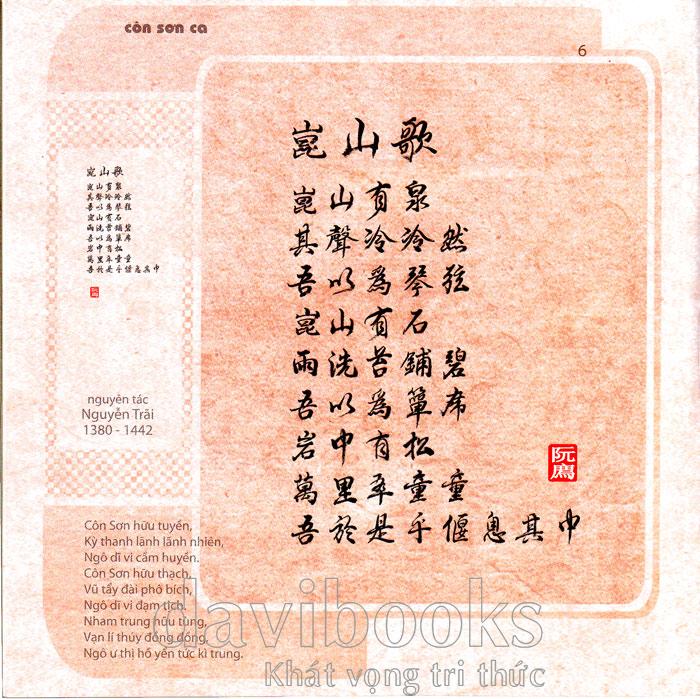 côn sơn ca
6
崑山歌
崑山有泉
其聲冷冷然
吾以為琴弦
崑山有石
雨洗苔鋪碧
吾以為簞席
岩中有松
萬里翠童童
吾於是乎偃息其中
阮廌
崑山歌
崑山有泉
其聲冷冷然
吾以為琴弦
崑山有石
雨洗苔鋪碧
吾以為簞席
岩中有松
萬里翠童童
吾於是乎偃息其中
nguyên tác
Nguyễn Trãi
1380 - 1442
Côn Sơn hữu tuyền,
Kỳ thanh lãnh lãnh nhiên,
Ngô dĩ vi cầm huyền.
Côn Sơn hữu thạch,
Vũ tẩy đài phô bích,
Ngô dĩ vi đạm tịch.
Nham trung hữu tùng,
Vạn lí thúy đồng đồng,
Ngô ư thị hồ yển tức kì trung.
davibooks
Khát vọng tri thức